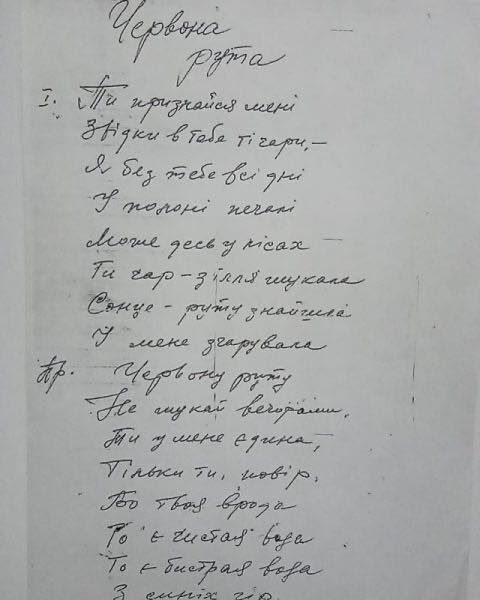 Червона
рута
I. Ти признайся мені
Звідки в тебе ті чари, –
Я без тебе всі дні
У полоні печалі
Може десь у лісах –
Ти чар – зілля шукала
Сонце – руту знайшла
У мене зчарувала
Пр. Червону руту
Не шукай вечорами,
Ти у мене єдина,
Тільки ти, повір,
Бо твоя врода
То є чистая вода
То є бистрая вода
З синіх гір.